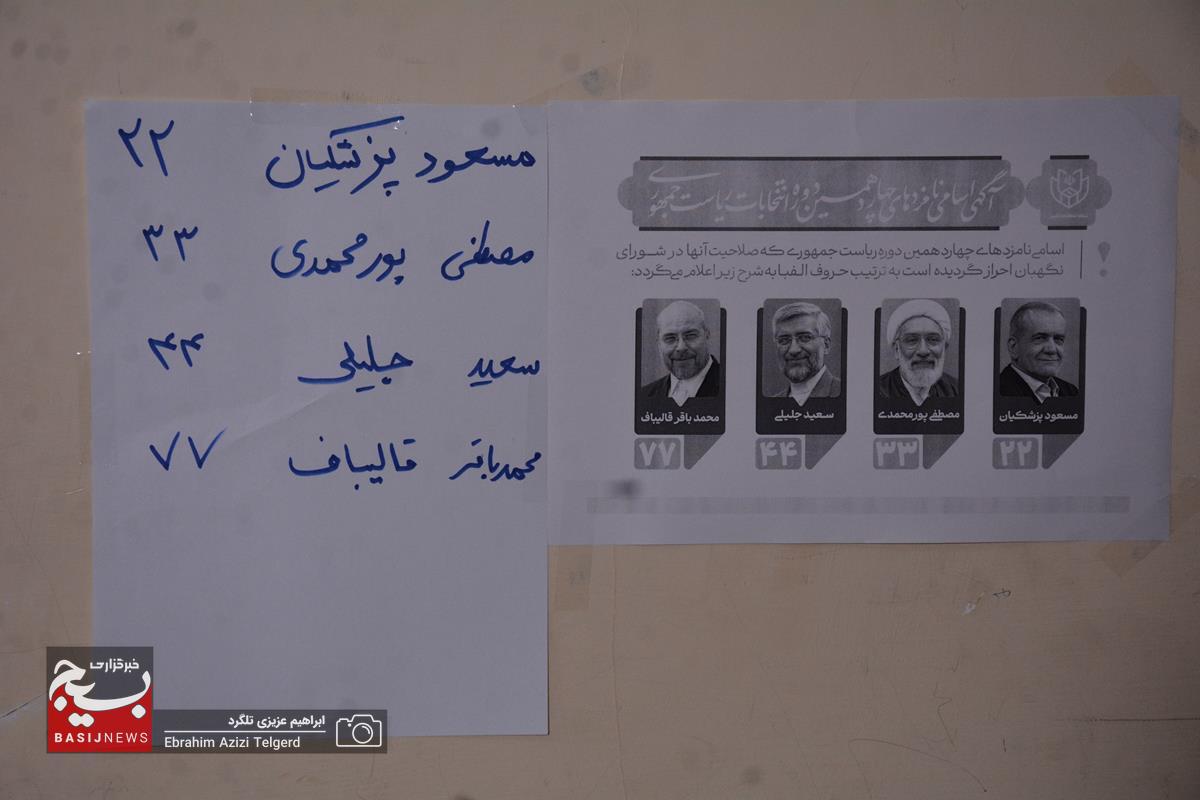 آگهی اسامی نامزدهای چهاردهمین دوره انتخابات ریاست جمهوری
اسامی نامزدهای چهاردهمین دوره ریاست جمهوری که صلاحیت آنها در شورای
نگهبان احراز گردیده است به ترتیب حروف الفبا به شرح زیر اعلام می‌گردد:
مسعود پزشکیان
۲۲
مصطفی پورمحمدی
۳۳
سعید جلیلی
۴۴
محمد باقر قالیباف
۷۷
مسعود پزشکیان ۲۲
مصطفی پورمحمدی ۳۳
سعید جلیلی ۴۴
محمدباقر قالیباف ۷۷
خبرگزاری
بسیج
BASIJNEWS
ابراهیم عزیزی تلگرد
Ebrahim Azizi Telgerd